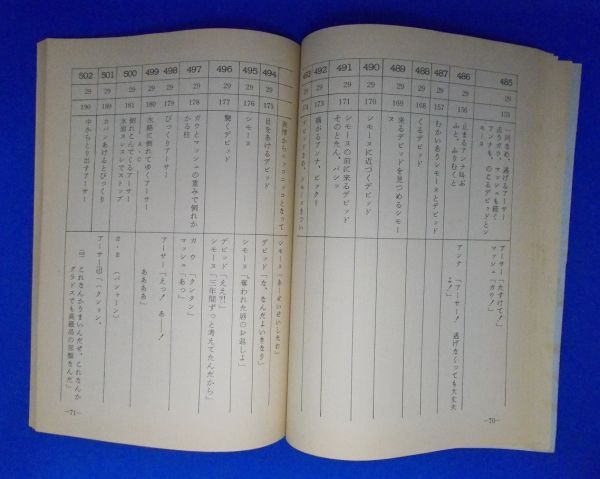 485
29
155
アーサー「たすけて!」
マッシュ「ガウ!」
486
29
止まるアンナ叫ぶ
ふと、ふりむくと
アンナ「アーサー! 逃げなくっても大丈夫
よ!」
487
29
157
むかいあうシモーヌとデビッド
488
29
168
くるデビッド
489
29
169
来るデビッドを見つめるシモー
ヌ
490
29
170
シモーヌに近づくデビッド
491
29
171
シモーヌの前に来るデビッド
そのとたん、バシッ
492
29
173
痛がるアンナ、ビッケ!
493
29
174
—70—
494
29
175
目をあけるデビッド
デビッド「な、なんだよいきなり」
495
29
176
シモーヌ
シモーヌ「奪われた唇のお返しよ」
496
29
177
驚くデビッド
デビッド「ええ?!」
シモーヌ「三年間ずっと考えてたんだから」
497
29
178
ガウとマッシュの重みで倒れか
かる柱
ガウ「クンタン」
マッシュ「あっ」
498
29
179
びっくりアーサー
アーサー「えっ! あ——!
499
29
180
水路に倒れてゆくアーサー
ああああ」
500
29
181
倒れこんでくるアーサー
水面スレスレでストップ
501
29
189
カバンあけるとびっくり
B・B (バシャーン)
502
29
190
中からとり出すアーサー
アーサー㊞「ハクション、
㊀ これなんかうまいんだぜ、これなんか
グラドスでも高級品の部類なんだ」
—71—